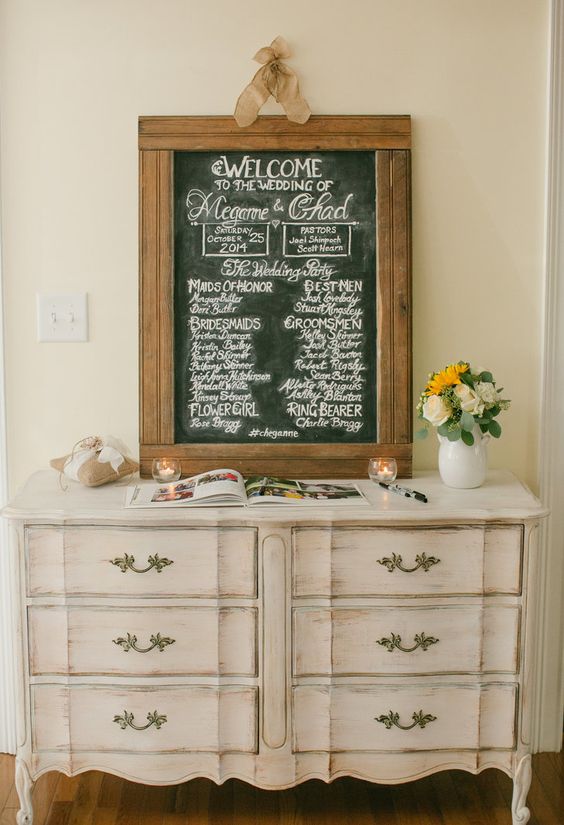 WELCOME
TO THE WEDDING OF
Meganne & Chad
SATURDAY
OCTOBER 25
2014
PASTORS
Joel Shinpoch
Scott Hearn
The Wedding Party
MAIDS OF HONOR
Morgan Butler
Deri Butler
BEST MEN
Josh Lovelady
Stuart Kingsley
BRIDESMAIDS
Kirsten Duncan
Kristin Bailey
Rachel Skinner
Bethany Skinner
Leigh Anna Hutchins
Kendall White
Kinsey Stuart
GROOMSMEN
Kelley Skinner
Josh Butler
Jacob Baxter
Robert Rigsby
Sean Berry
Alberto Rodriguez
Ashley Blanton
FLOWER GIRL
Rose Bragg
RING BEARER
Charlie Bragg
#cheganne